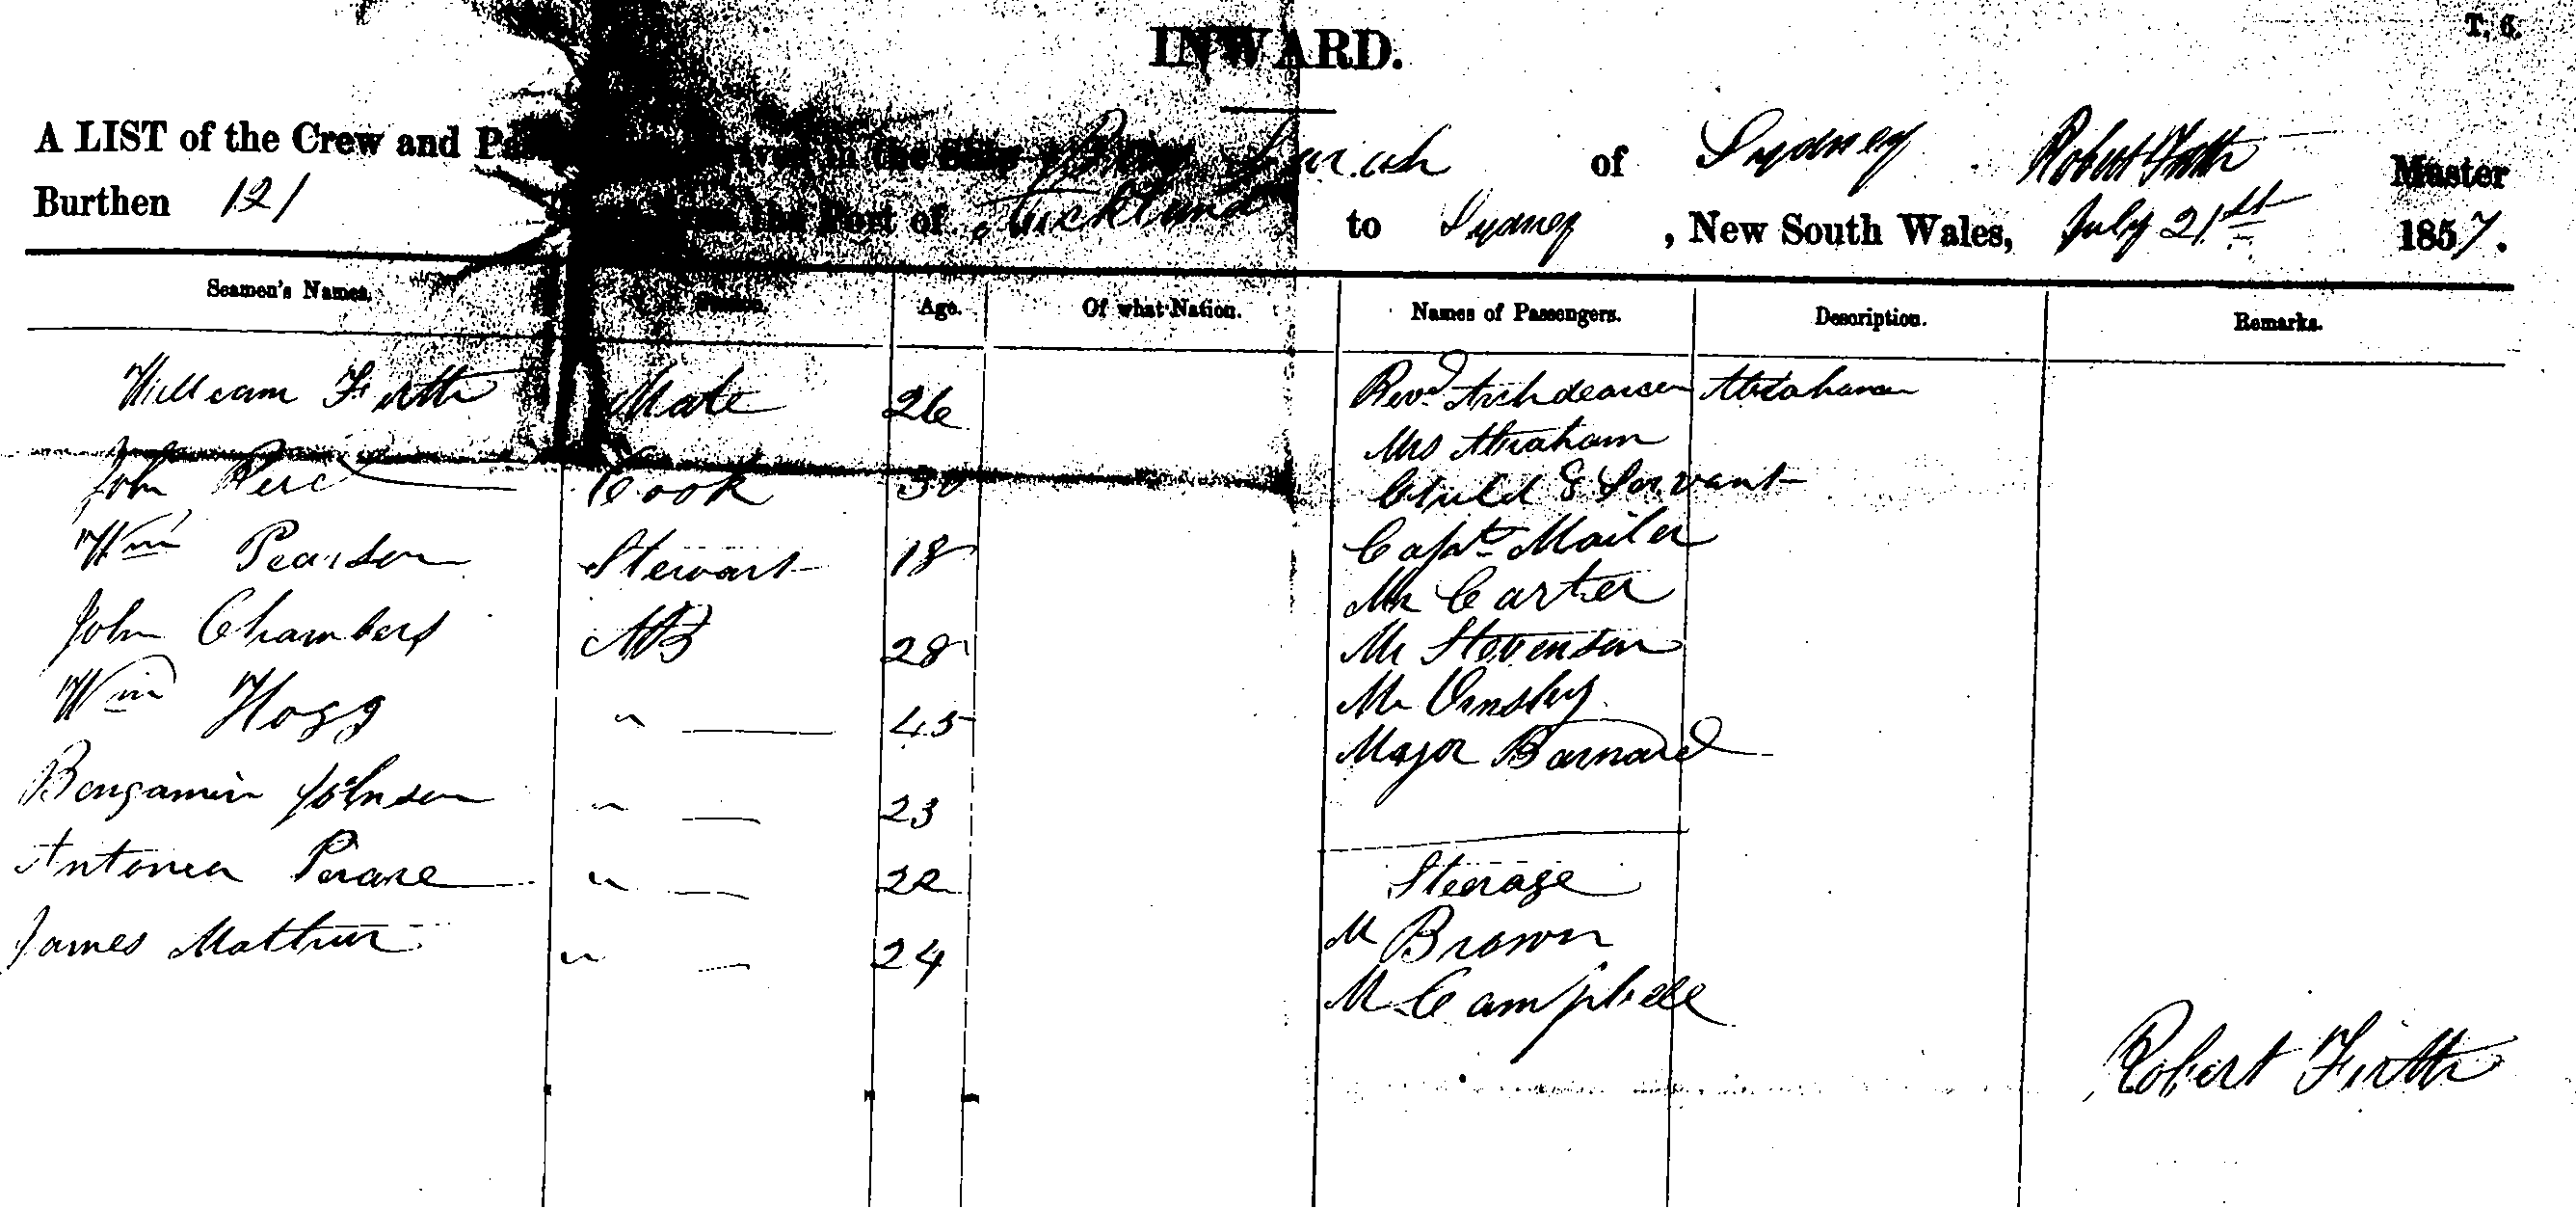 T. 6.
INWARD.
A LIST of the Crew and in the Brig Sarah of Sydney Robert Firth Master
Burthen 121 the Port of Auckland to Sydney, New South Wales, July 21st 1857.
Seamen's Names. Age. Of what Nation. Names of Passengers. Description. Remarks.
William Firth Mate 26 Revd Archdeacon Abraham
Mrs Abraham
John Cook 30 Child & Servant
Wm Pearson Stewart 18 Capt Mailer
Mr Carter
John Chambers AB 28 Mr Stevenson
Wm Hogg " 45 Mr Ormsby
Major Barnard
Bengamin Johnson " 23
Antonia " 22 Steerage
James " 24 M Brown
M Campbell
Robert Firth